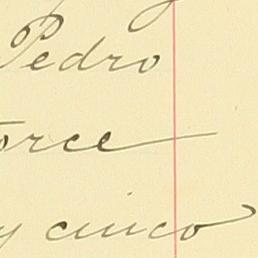 Pedro
orce
y cinco